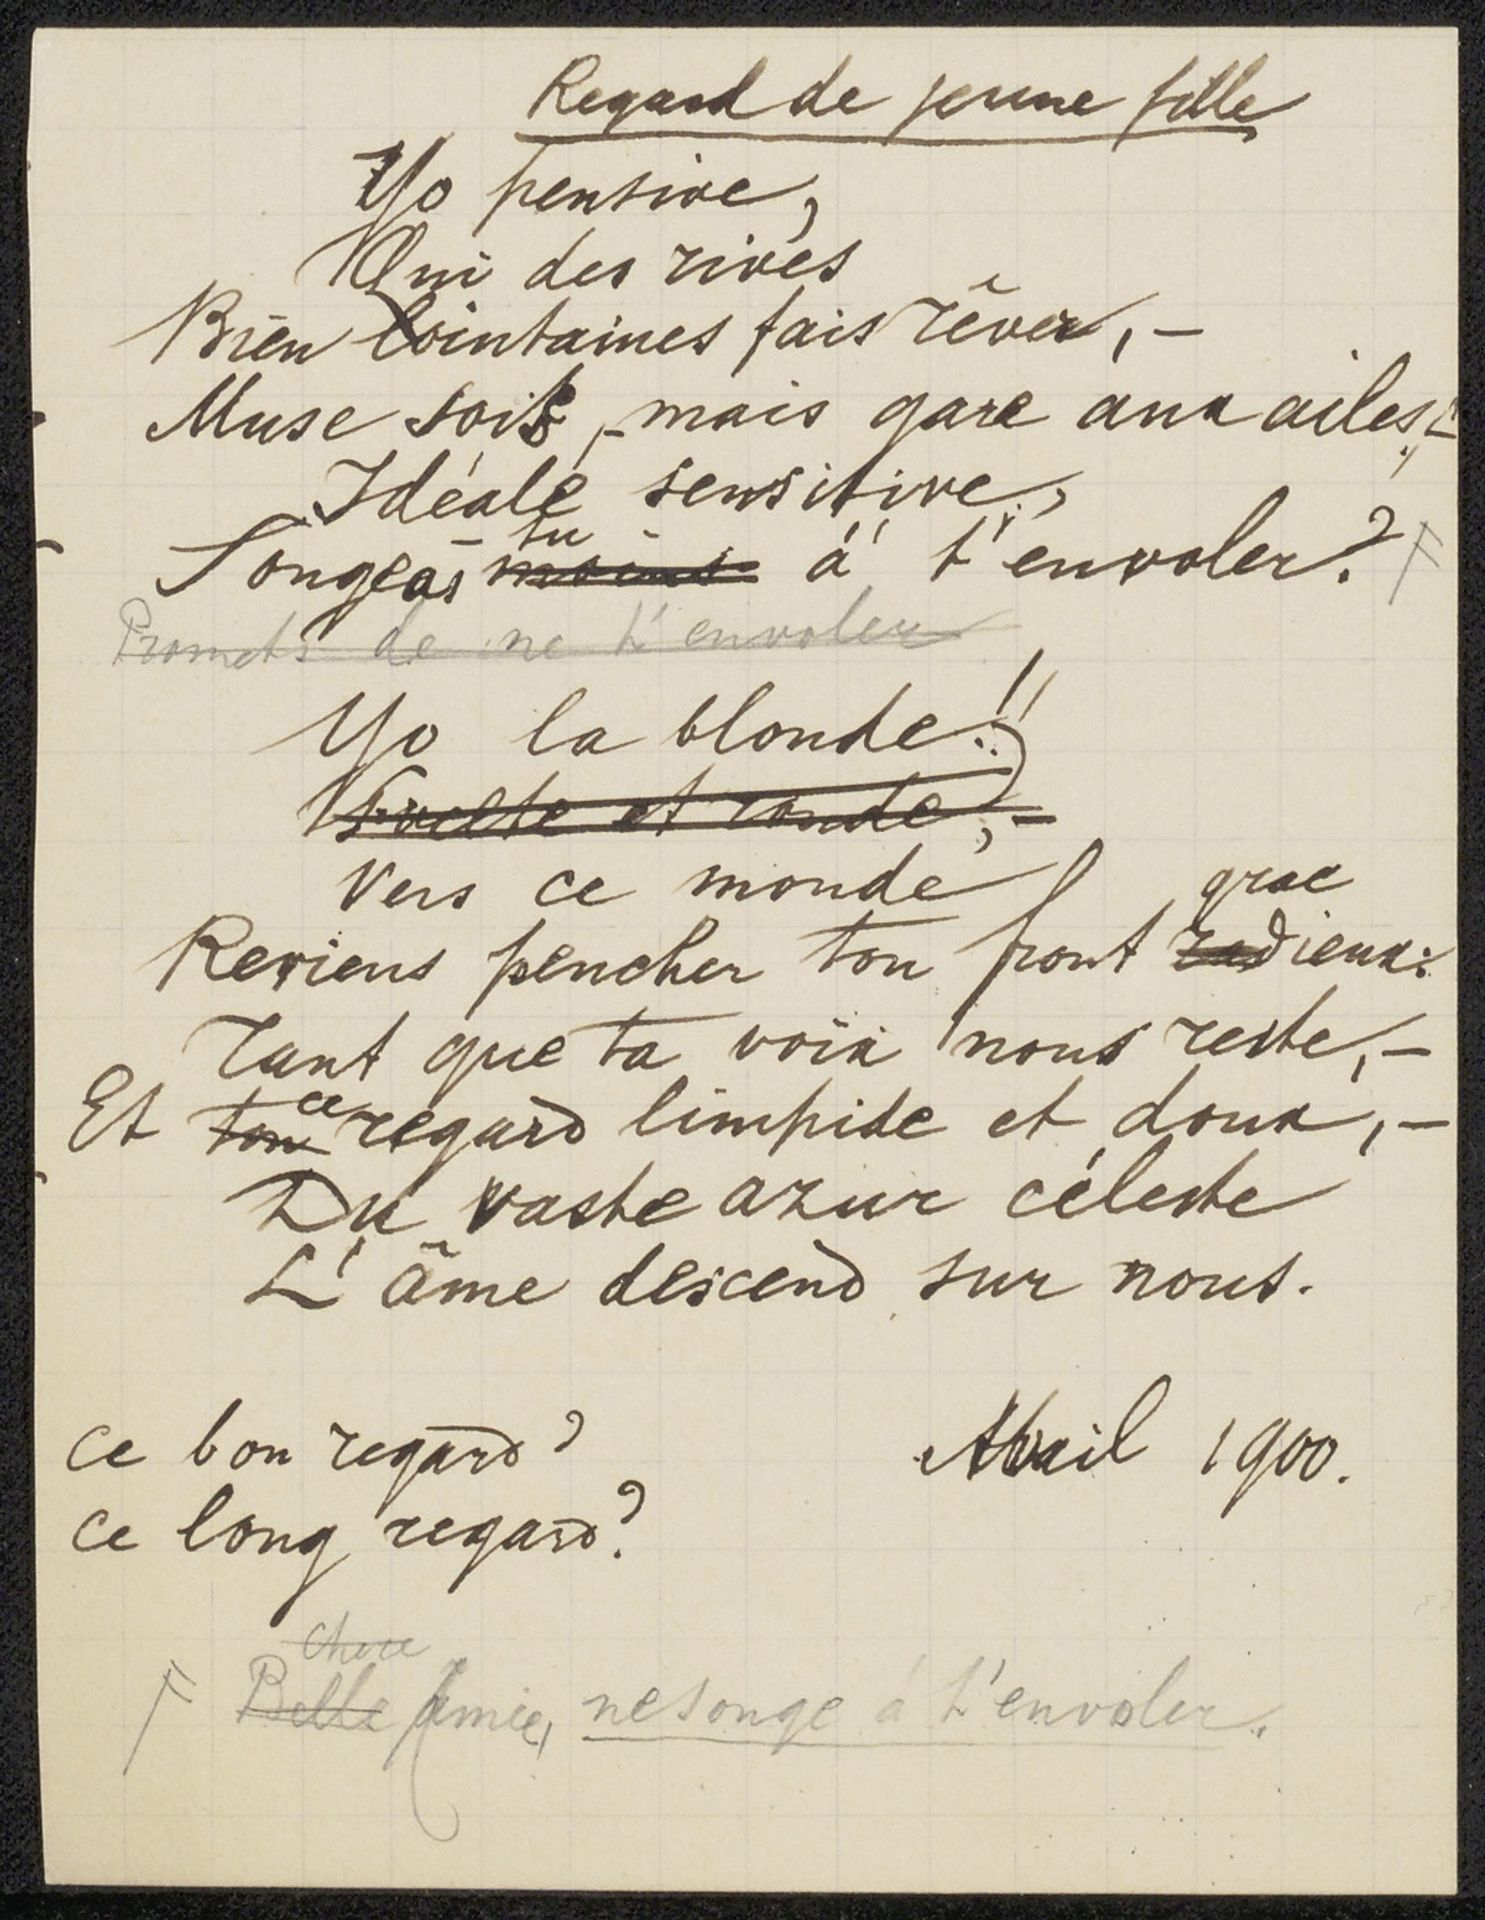 Regard de jeune fille
Yo pensive,
Qui des rives
Bien lointaines fais rêver, —
Muse sois, — mais gare aux ailes, —
Idéale sensitive,
tu
Songeas- moins à t'envoler? F
Promets de ne t'envoler
Yo la blonde!!
Svelte et ronde, —
Vers ce monde
grac
Reviens pencher ton front radieux:
Tant que ta voix nous reste, —
ce
Et ton regard limpide et doux, —
Du vaste azur céleste
L'âme descend sur nous.
Ce bon regard?
Avril 1900.
Ce long regard?
Chère
F Belle Amie, ne songe à t'envoler.